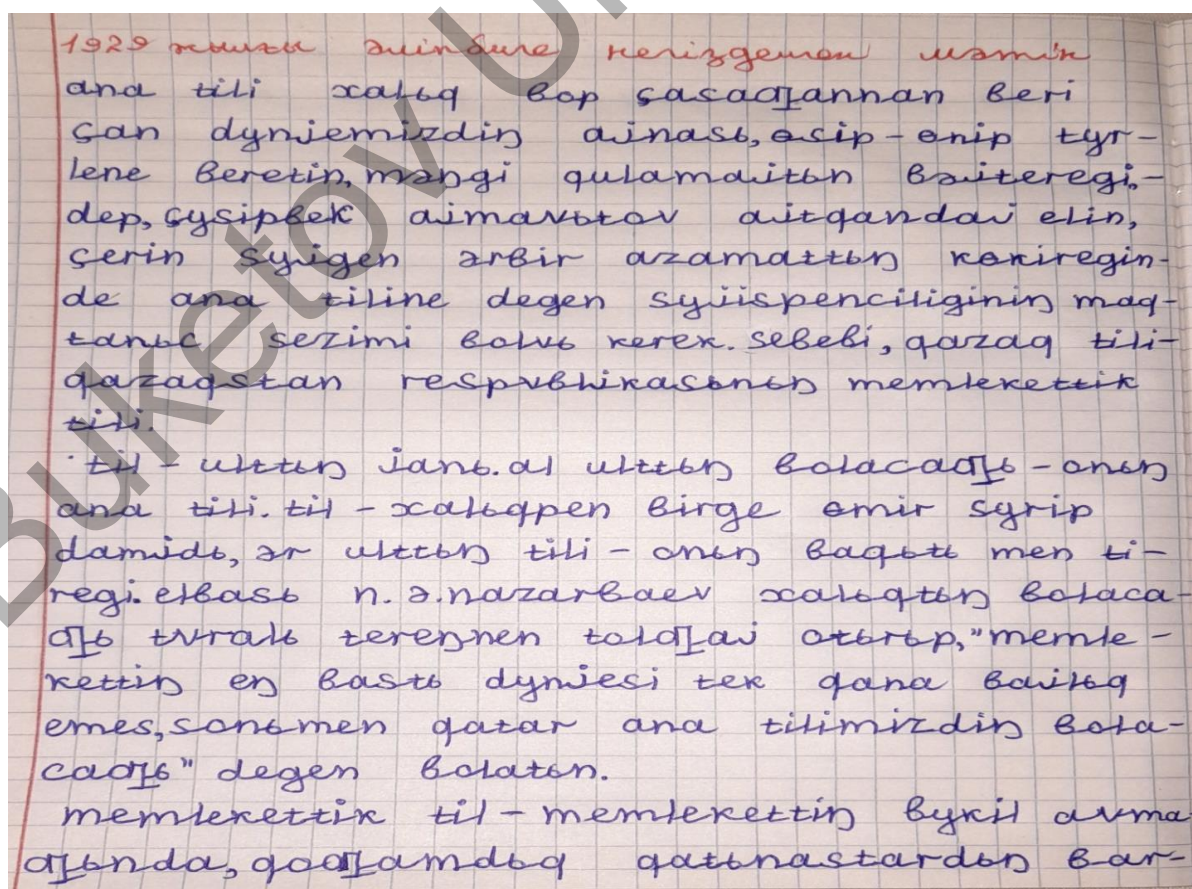 1929 жылғы әліпбиге негізделген мәтін
ana tili xalьq ʙop çasaƣannan ʙeri
çan dynjemizdiꞑ ajnasь, ɵsip-ɵnip tyr-
lene ʙeretin, məꞑgi qulamajtьn ʙəjteregi,-
dep, çysipʙek ajmavьtov ajtqandaj elin,
çerin syjgen ərʙir azamattьꞑ kɵkiregin-
de ana tiline degen syjispenciliginiꞑ maq-
tanьc sezimi ʙolvь kerek. seʙeʙi, qazaq tili-
qazaqstan respvʙlikasьnьꞑ memlekettik
tili.
til - ulttьꞑ janь. al ulttьꞑ ʙolacaƣь - onьꞑ
ana tili. til - xalьqpen ʙirge ɵmir syrip
damidь, ər ulttьꞑ tili - onьꞑ ʙaqьtь men ti-
regi. elʙasь n. ə. nazarʙaev xalьqtьꞑ ʙolaca-
ƣь tvralь tereꞑnen tolƣaj otьrьp, "memle-
kettiꞑ eꞑ ʙastь dynjesi tek qana ʙajlьq
emes, sonьmen qatar ana tilimizdiꞑ ʙola-
caƣь" degen ʙolatьn.
memlekettik til - memlekettiꞑ ʙykil avma
ƣьnda, qoƣamdьq qatьnastardьꞑ ʙar-
Buketov U